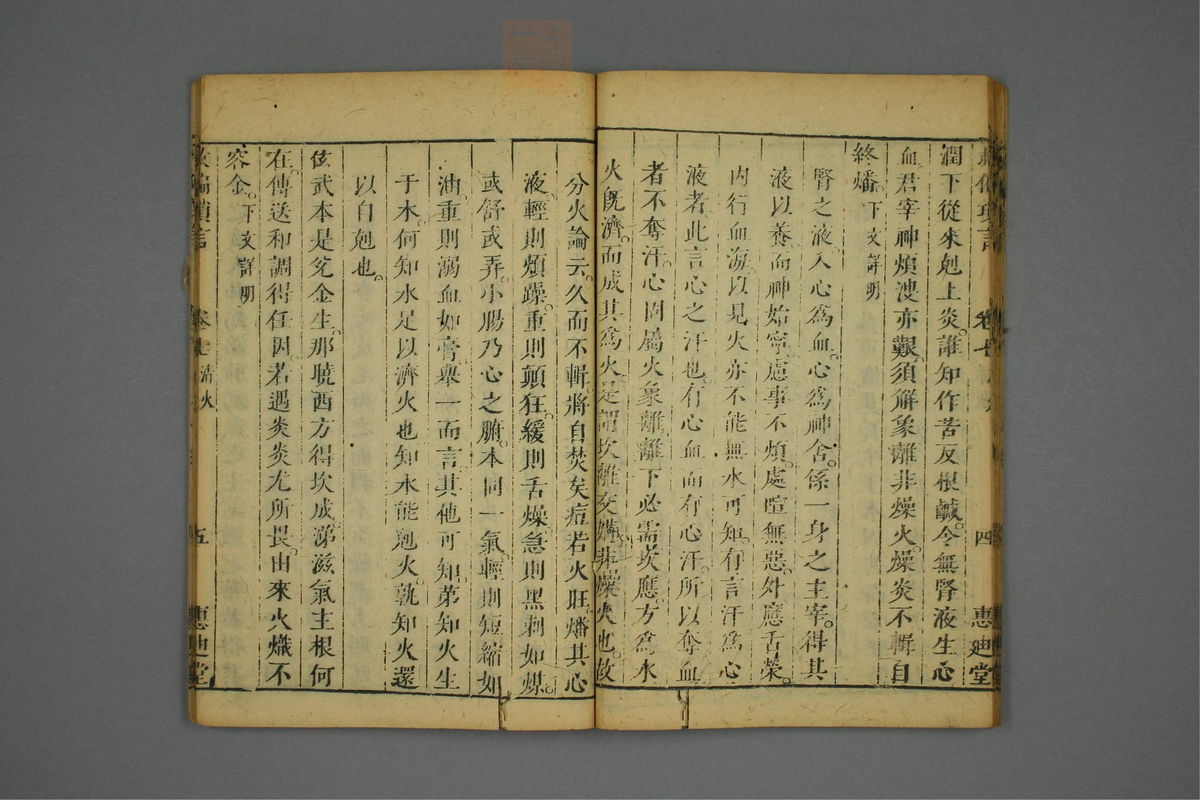 潤下從來尅上炎。誰知作苦反根鹹。今無腎液生心
血。君宰神煩溲亦艱。須解象離非燥火。燥炎不輯自
終燔。下文詳明
腎之液。入心爲血。心爲神舍。係一身之主宰。得其
液以養而神始寧。慮事不煩。處暄無惡。外應舌榮。
內行血海。以見火亦不能無水可知。有言汗爲心
液者。此言心之汗也。有心血而有心汗。所以奪血
者不奪汗。心固屬火象離。離下必需坎應。方爲水
火既濟。而成其爲火。是謂坎離交媾。非燥火也。故
分火論云。久而不輯。將自焚矣。痘若火旺。燔其心
液。輕則煩躁。重則顛狂。緩則舌燥。急則黑刺如煤。
或舒或弄。小腸乃心之腑。本同一氣。輕則短縮如
油。重則溺血如膏。舉一而言。其他可知。第知火生
于木。何知水足以濟火也。知水能尅火。孰知火還
以自尅也。
玄武本是兌金生。那曉西方得坎成。涕滋氣主根何
在。傳送和調得任因。若遇炎炎尢所畏。由來火熾不
容金。下文詳明
卷七 四 惠迪堂
救偏瑣言 卷七 清火 五 惠迪堂